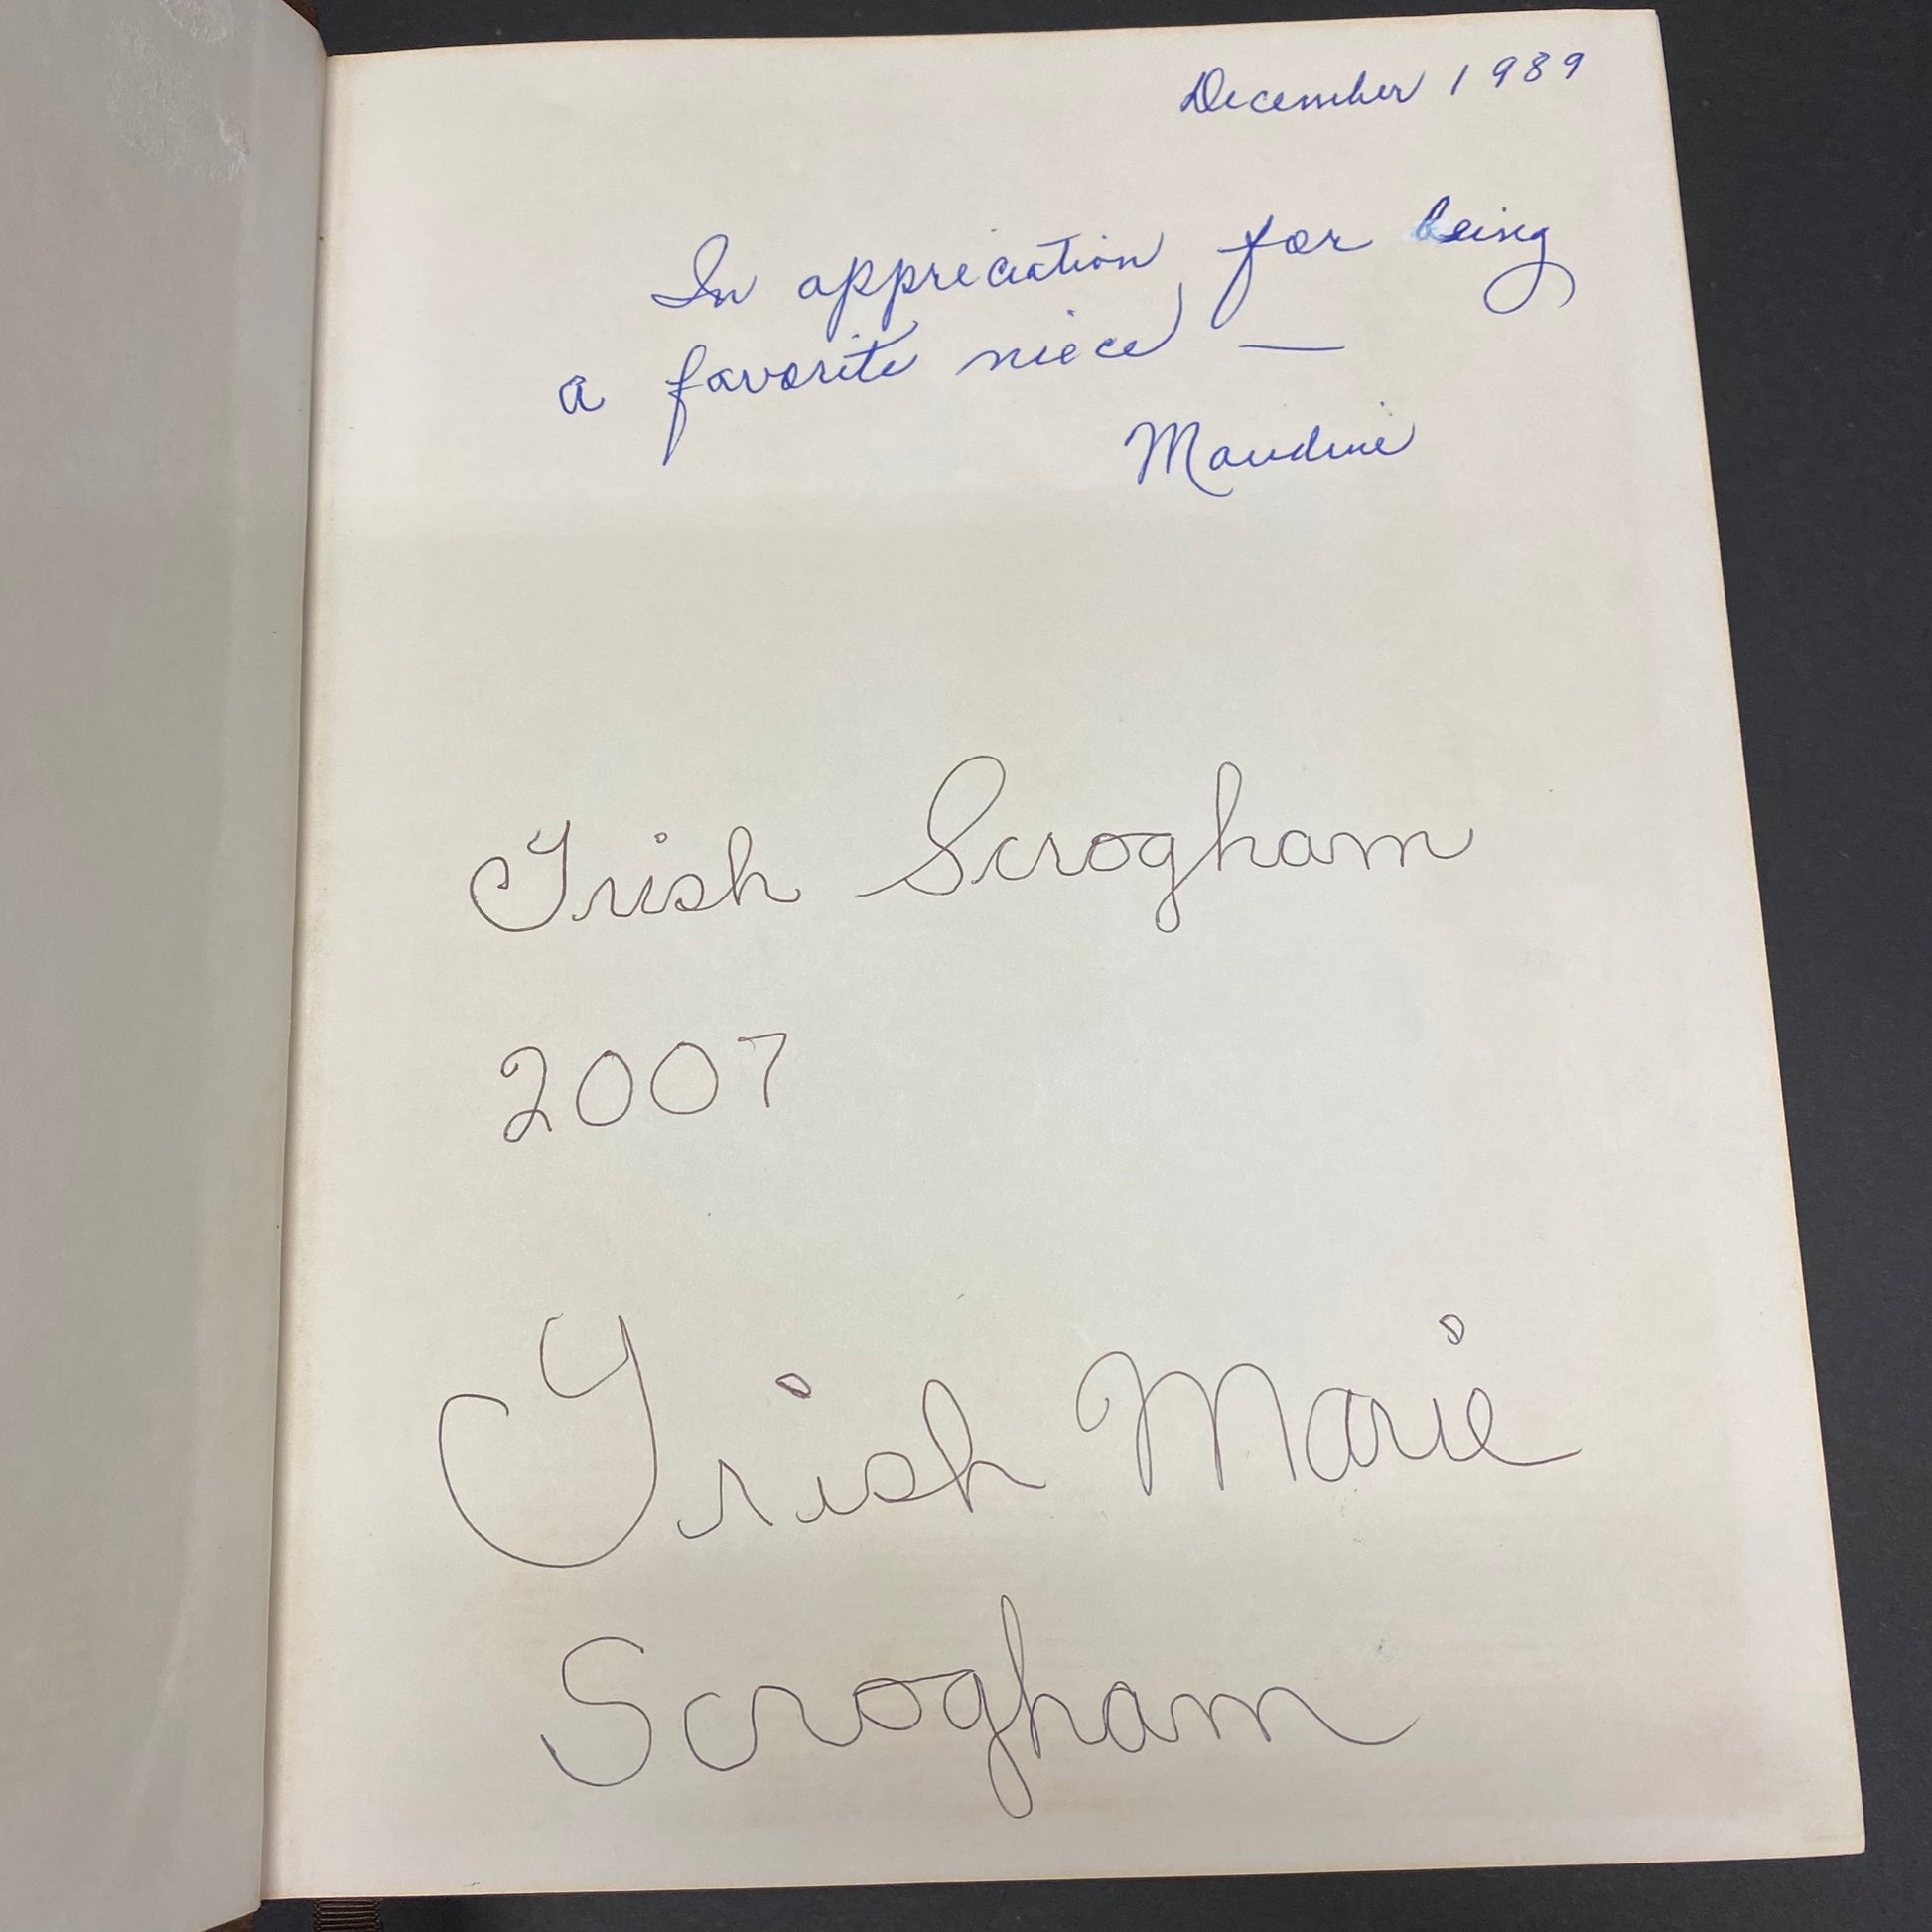 December 1989
In appreciation for being
a favorite niece —
Maudine
Trish Scrogham
2007
Trish Marie
Scrogham